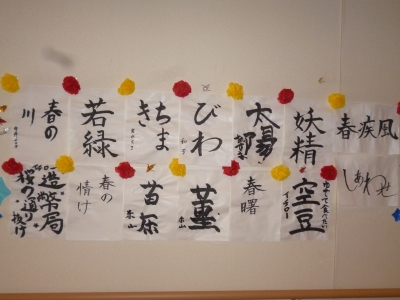 春の川
若緑
ちまき
びわ
妖精
春疾風
造幣局
桜の通り抜け
春の情け
苗
菫
春曙
空豆
しあわせ